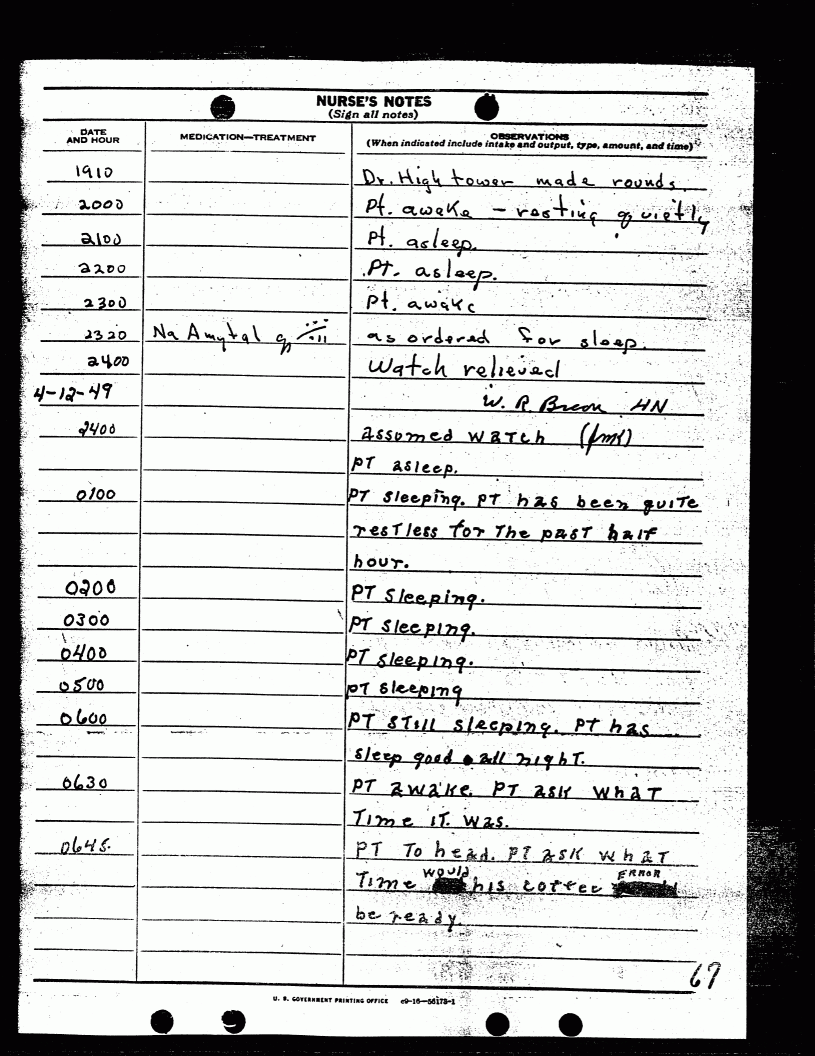 NURSE'S NOTES
(Sign all notes)
DATE AND HOUR MEDICATION—TREATMENT OBSERVATIONS
(When indicated include intake and output, type, amount, and time)
1910 Dr. Hightower made rounds.
2000 Pt. awake – resting quietly
2100 Pt. asleep.
2200 Pt. asleep.
2300 Pt. awake
2320 Na Amytal as ordered for sleep.
2400 Watch relieved
4-12-49 W. R. HN
2400 assumed watch
PT asleep.
0100 PT sleeping. PT has been quite
restless for The past half
hour.
0200 PT Sleeping.
0300 PT Sleeping.
0400 PT Sleeping.
0500 PT Sleeping
0600 PT STill sleeping. PT has
sleep good all nighT.
0630 PT awake. PT ask whaT
Time iT. was.
0645. PT To head. PT ask whaT
Time would his coffee ERROR
be ready.
67
U. S. GOVERNMENT PRINTING OFFICE c9-16-56173-1